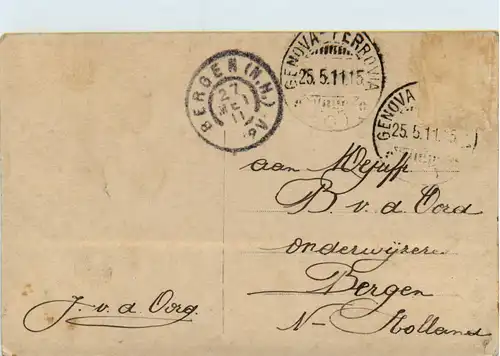 GENOVA-FERROVIA
25.5.11.15
BERGEN (N.H.)
27
MEI
11
9V
GENOVA
25.5.11.15
aan Mejuff
B. v. d. Oord
onderwijzeres
Bergen
N-Holland
J. v. d. Oord.